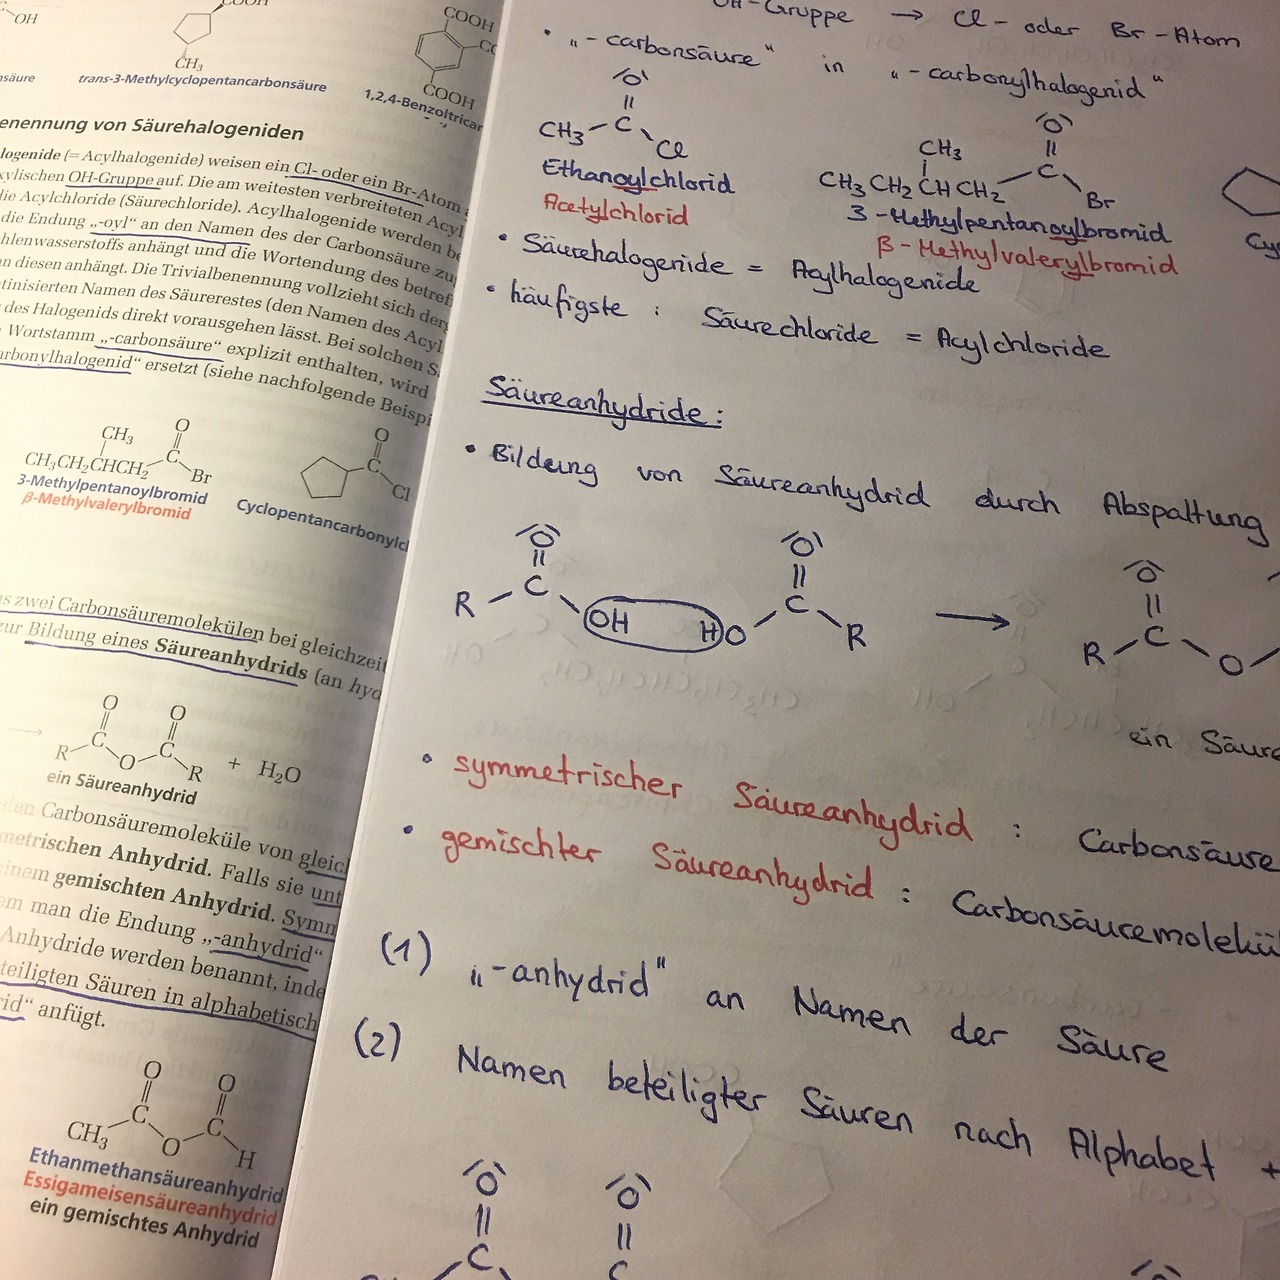 OH
COOH
CH₃
säure
trans-3-Methylcyclopentancarbonsäure
COOH
COOH
1,2,4-Benzoltricar
enennung von Säurehalogeniden
logenide (= Acylhalogenide) weisen ein Cl- oder ein Br-Atom
xylischen OH-Gruppe auf. Die am weitesten verbreiteten Acyl
die Acylchloride (Säurechloride). Acylhalogenide werden be
die Endung „-oyl“ an den Namen des der Carbonsäure zu
hlenwasserstoffs anhängt und die Wortendung des betref
n diesen anhängt. Die Trivialbenennung vollzieht sich derg
tinisierten Namen des Säurerestes (den Namen des Acyl
des Halogenids direkt vorausgehen lässt. Bei solchen S
Wortstamm „-carbonsäure“ explizit enthalten, wird
arbonylhalogenid“ ersetzt (siehe nachfolgende Beispi
CH₃
O
CH₃CH₂CHCH₂
C
Br
3-Methylpentanoylbromid
β-Methylvalerylbromid
O
C
Cl
Cyclopentancarbonylc
s zwei Carbonsäuremolekülen bei gleichzeit
zur Bildung eines Säureanhydrids (an hyd
O O
→ R C O C R + H₂O
ein Säureanhydrid
den Carbonsäuremoleküle von gleich
metrischen Anhydrid. Falls sie unt
inem gemischten Anhydrid. Symn
em man die Endung „-anhydrid“
Anhydride werden benannt, inde
teiligten Säuren in alphabetisch
rid“ anfügt.
O O
CH₃ C O C H
Ethanmethansäureanhydrid
Essigameisensäureanhydrid
ein gemischtes Anhydrid
OH-Gruppe → Cl- oder Br-Atom
• „-carbonsäure“ in „-carbonylhalogenid“
O
CH₃ C Cl
Ethanoylchlorid
Acetylchlorid
O
CH₃
CH₃CH₂CHCH₂ C Br
3-Methylpentanoylbromid
β-Methylvalerylbromid
Cy
• Säurehalogenide = Acylhalogenide
• häufigste : Säurechloride = Acylchloride
Säureanhydride:
• Bildung von Säureanhydrid durch Abspaltung
O O O
R C OH HO C R → R C O
ein Säure
• symmetrischer Säureanhydrid : Carbonsäure
• gemischter Säureanhydrid : Carbonsäuremolekü
(1) „-anhydrid“ an Namen der Säure
(2) Namen beteiligter Säuren nach Alphabet +
O O
C C